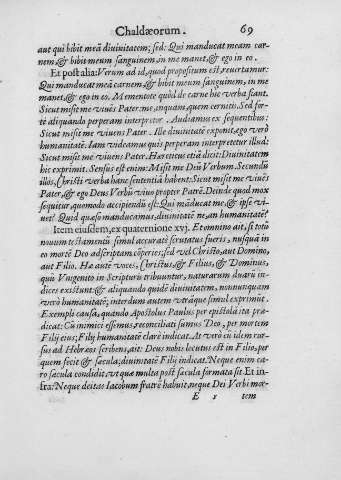 Chaldæorum. 69
aut qui bibit meã diuinitatem; sed: Qui manducat meam car-
nem, & bibit meum sanguinem, in me manet, & ego in eo.
Et post alia: Verum ad id, quod propositum est, reuertamur:
Qui manducat meã carnem, & bibit meum sanguinem, in me
manet, & ego in eo. Mementote quòd de carne hic verba fiant.
Sicut misit me viuẽs Pater: me, inquam, quem cernitis. Sed for-
tè aliquando perperam interpretor. Audiamus ex sequentibus:
Sicut misit me viuens Pater. Ille diuinitatẽ exponit, ego verò
humanitatẽ. Iam videamus quis perperam interpretetur illud:
Sicut misit me viuẽs Pater. Hæreticus etiã dicit: Diuinitatem
hic exprimit. Sensus eſt enim: Misit me Deũ Verbum. Secundũ
illos, Christi verba hanc sententiã habent: Sicut misit me viuẽs
Pater, & ego Deus Verbũ viuo propter Patrẽ. Deinde quod mox
sequitur, quomodo accipiendũ est: Qui mãducat me & ipse vi-
uet? Quid quæso manducamus, diuinitatẽ ne, an humanitatẽ?
Item eiusdem, ex quaternione xvj. Et omnino ait, si totũ
nouum testamentũ simul accuratè scrutatus fueris, nusquã in
eo mortẽ Deo adscriptam cõperies; sed vel Christo, aut Domino,
aut Filio. Hæ autẽ voces, Christus, & Filius, & Dominus,
quũ Vnigenito in Scripturis tribuuntur, naturarum duarũ in-
dices existunt: & aliquando quidẽ diuinitatem, nonnunquam
verò humanitatẽ; interdum autem vtrãque simul exprimunt.
Exempli causa, quando Apostolus Paulus per epistolã ita præ-
dicat: Cũ inimici essemus, reconciliati sumus Deo, per mortem
Filij eius; Filij humanitatẽ clarè indicat. At verò cùm idem rur-
sus ad Hebræos scribens, ait: Deus nobis locutus est in Filio, per
quem fecit & sæcula; diuinitatẽ Filij indicat. Neque enim ca-
ro sæcula condidit, vt quæ multa post sæcula formata sit. Et in-
fra: Neque deitas Iacobum fratrẽ habuit, neque Dei Verbi mor-
E 3 tem